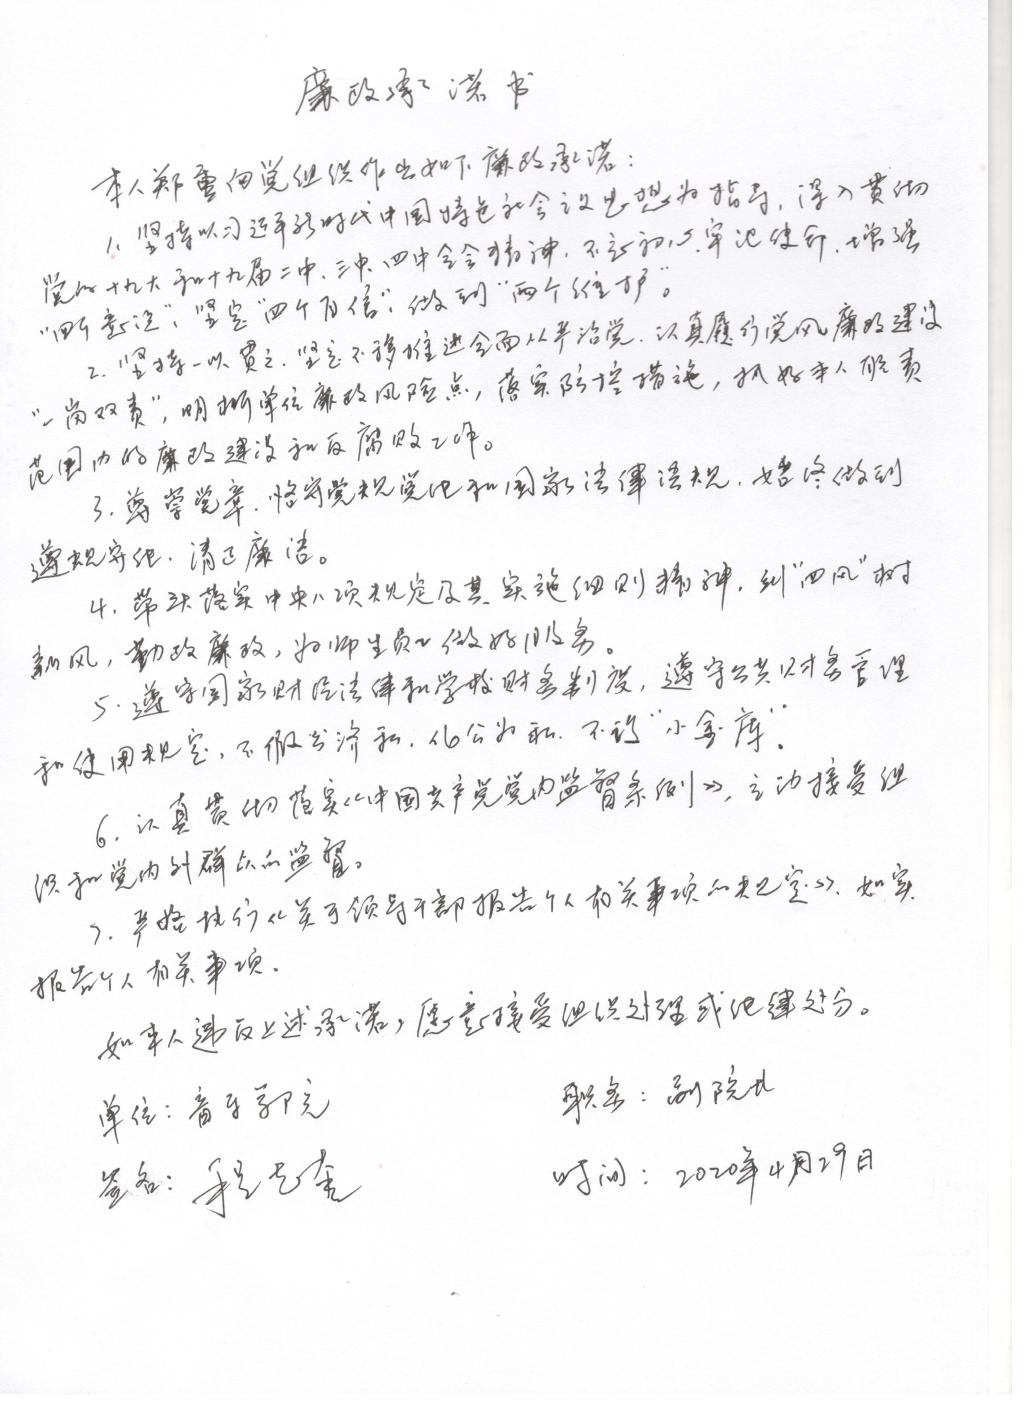 廉政承诺书
本人郑重向党组织作出如下廉政承诺：
1、坚持以习近平新时代中国特色社会主义思想为指导，深入贯彻
党的十九大和十九届二中、三中、四中全会精神，不忘初心、牢记使命，增强
“四个意识”、坚定“四个自信”，做到“两个维护”。
2、坚持一以贯之、坚定不移推进全面从严治党，认真履行党风廉政建设
“一岗双责”，明晰单位廉政风险点，落实防控措施，抓好本人职责
范围内的廉政建设和反腐败工作。
3、尊崇党章，恪守党规党纪和国家法律法规，始终做到
遵规守纪、清正廉洁。
4、带头落实中央八项规定及其实施细则精神，纠“四风”树
新风，勤政廉政，为师生员工做好服务。
5、遵守国家财经法律和学校财务制度，遵守公共财务管理
和使用规定，不假公济私、化公为私、不设“小金库”。
6、认真贯彻落实《中国共产党党内监督条例》，主动接受组
织和党内外群众的监督。
7、严格执行《关于领导干部报告个人有关事项的规定》，如实
报告个人有关事项。
如本人违反上述承诺，愿意接受组织处理或纪律处分。
单位：音乐学院
职务：副院长
签名：
时间：2020年4月29日